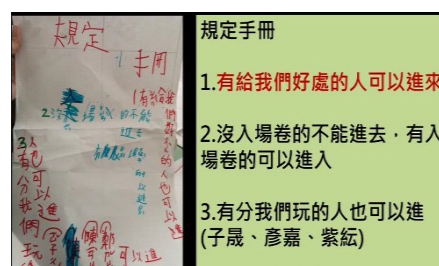 規定
手冊
1有給我們好處的人也可以進
2沒 場卷的不能進去
有 場 可以進去
3有分我們玩
人也可以進
可以進
規定手冊
1.有給我們好處的人可以進來
2.沒入場卷的不能進去，有入
場卷的可以進入
3.有分我們玩的人也可以進
(子晟、彥嘉、紫紜)